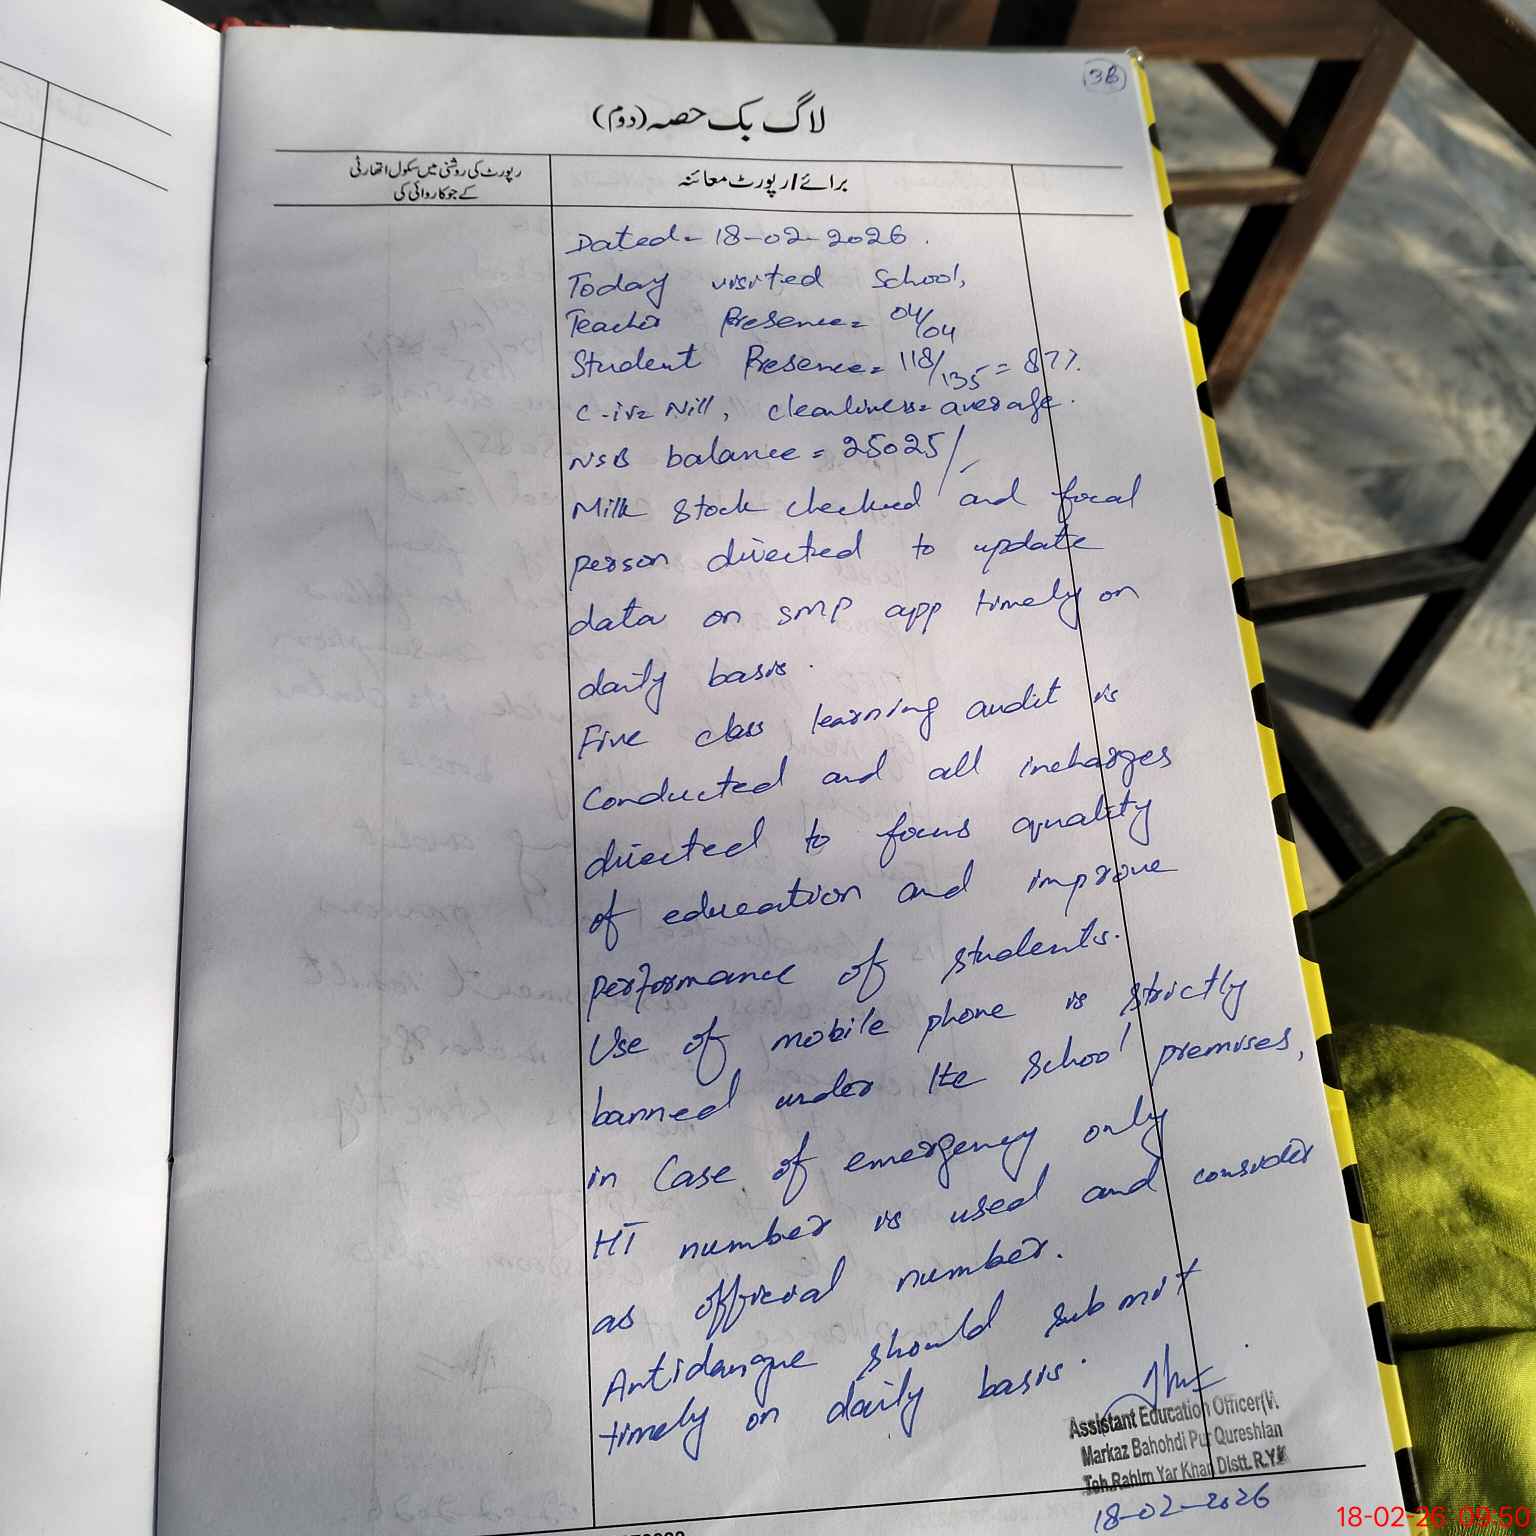 3B
لاگ بک حصہ (دوم)
رپورٹ کی روشنی میں سکول اتھارٹی
کے جو کاروائی کی
برائے / رپورٹ معائنہ
Dated= 18-02-2026.
Today visited School,
Teacher Presence= 04/04
Student Presence= 118/135 = 87%.
C-iv= Nill, cleanliness= average.
NSB balance = 25025/
Milk Stock checked and focal
person directed to update
data on SMP app timely on
daily basis.
Five class learning audit is
Conducted and all incharges
directed to focus quality
of education and improve
performance of students.
Use of mobile phone is strictly
banned under the School premises,
in Case of emergency only
HT number is used and consider
as official number.
Antidangue should submit
timely on daily basis.
Assistant Education Officer
Markaz Bahohdi Pur Qureshian
Teh.Rahim Yar Khan Distt. R.Y.K
18-02-2026
18-02-26 09:50